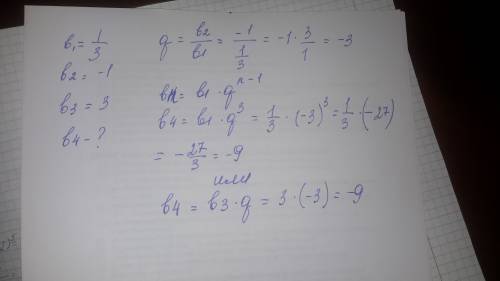 в₁ = 1/3
в2 = -1
в3 = 3
в4 - ?
q = в2/в1 = -1/(1/3) = -1 · 3/1 = -3
вn = в1 · qⁿ⁻¹
в4 = в1 · q³ = 1/3 · (-3)³ = 1/3 · (-27)
= -27/3 = -9
или
в4 = в3 · q = 3 · (-3) = -9